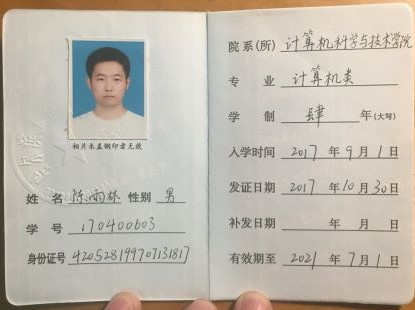 相片未盖钢印者无效
姓 名 陈雨林 性别 男
学 号 170400603
身份证号 420528199707131817
院系(所) 计算机科学与技术学院
专 业 计算机类
学 制 肆 年(大写)
入学时间 2017 年 9 月 1 日
发证日期 2017 年 10 月 30 日
补发日期 年 月 日
有效期至 2021 年 7 月 1 日